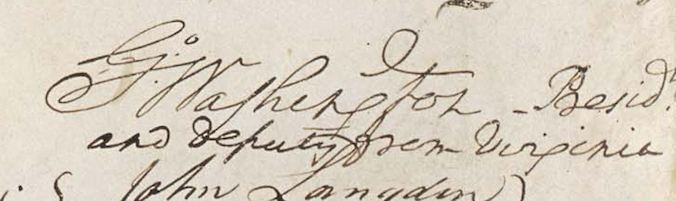 Go. Washington - Presidt.
and deputy from Virginia
John Langdon }